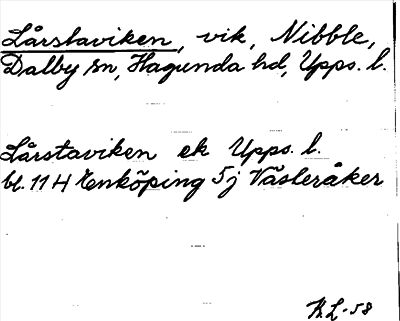 Lårstaviken, vik, Nibble,
Dalby sn, Hagunda hd, Upps. l.
Lårstaviken ek Upps. l.
bl. 114 Enköping 5j Västeråker
K.L-58